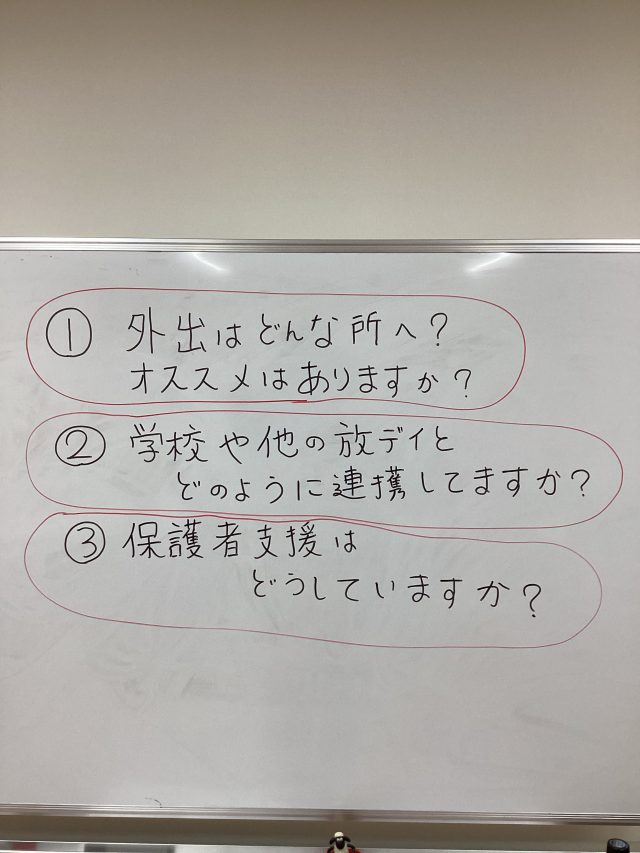 ① 外出はどんな所へ?
オススメはありますか?
② 学校や他の放デイと
どのように連携してますか?
③ 保護者支援は
どうしていますか?